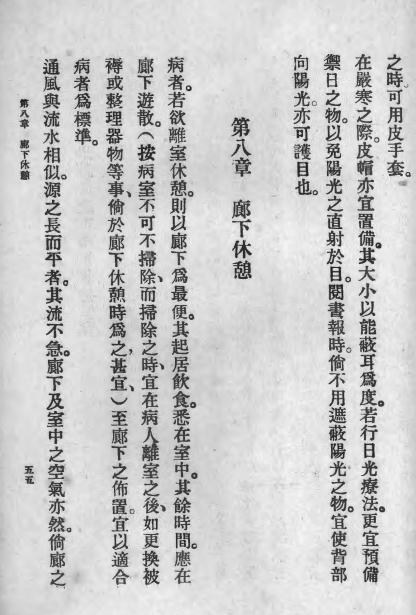 之時。可用皮手套。
在嚴寒之際。皮帽亦宜置備。其大小以能蔽耳爲度。若行日光療法。更宜預備
禦日之物。以免陽光之直射於目。閱書報時。倘不用遮蔽陽光之物。宜使背部
向陽光。亦可護目也。
第八章　廊下休憩
病者。若欲離室休憩。則以廊下爲最便。其起居飲食。悉在室中。其餘時間。應在
廊下遊散。（按病室不可不掃除、而掃除之時、宜在病人離室之後、如更換被
褥或整理器物等事、倘於廊下休憩時爲之、甚宜、）至廊下之佈置。宜以適合
病者爲標準。
通風與流水相似。源之長而平者。其流不急。廊下及室中之空氣亦然。倘廊之
第八章　廊下休憩
五五